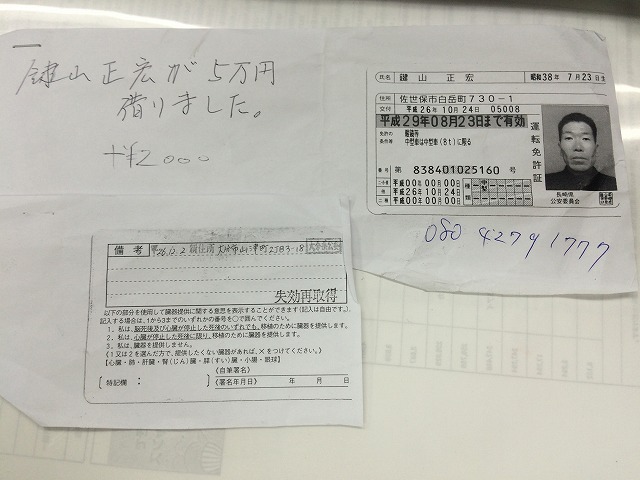 鍵山正宏が5万円
借りました。
+¥2000
氏名 鍵山 正宏 昭和38年 7月23日生
住所 佐世保市白岳町730-1
交付 平成26年10月24日 05008
平成29年08月23日まで有効
免許の条件等
眼鏡等
中型車は中型車(8t)に限る
番号 第 838401025160 号
二小原 平成00年00月00日
他 平成26年10月24日
二種 平成00年00月00日
種類 中型
運転免許証
長崎県
公安委員会
080 4279 1777
備考 26.12.2
失効再取得
以下の部分を使用して臓器提供に関する意思を表示することができます(記入は自由です。)
記入する場合は、1から3までのいずれかの番号を○で囲んでください。
1. 私は、脳死後及び心臓が停止した死後のいずれでも、移植のために臓器を提供します。
2. 私は、心臓が停止した死後に限り、移植のために臓器を提供します。
3. 私は、臓器を提供しません。
《1又は2を選んだ方で、提供したくない臓器があれば、×をつけてください。》
【心臓・肺・肝臓・腎(じん)臓・膵(すい)臓・小腸・眼球】
〔特記欄: 〕
《自筆署名》
《署名年月日》 年 月 日